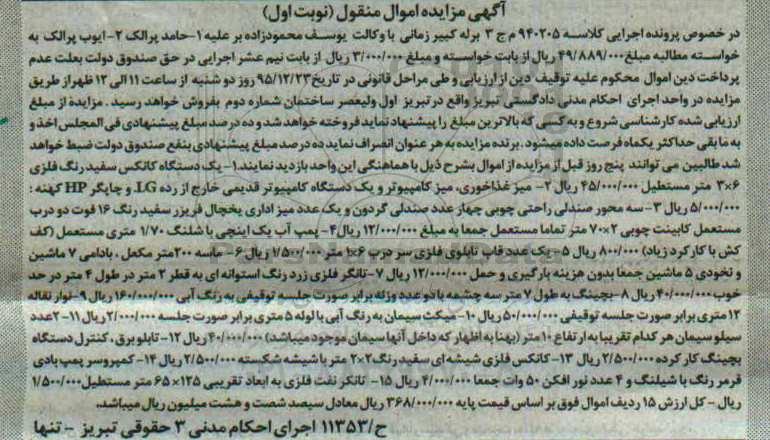 آگهی مزایده اموال منقول (نوبت اول)
در خصوص پرونده اجرایی کلاسه ۹۴۰۲۰۵ م ج ۳ برله کبیر زمانی با وکالت یوسف محمودزاده بر علیه ۱-حامد پرالک ۲- ایوب پرالک به
خواسته مطالبه مبلغ ۴۹/۸۸۹/۰۰۰ ریال از بابت خواسته و مبلغ ۳/۰۰۰/۰۰۰ ریال از بابت نیم عشر اجرایی در حق صندوق دولت بعلت عدم
پرداخت دین اموال محکوم علیه توقیف دین از ارزیابی و طی مراحل قانونی در تاریخ ۹۵/۱۲/۲۳ روز دو شنبه از ساعت ۱۱ الی ۱۲ ظهر از طریق
مزایده در واحد اجرای احکام مدنی دادگستی تبریز واقع در تبریز اول ولیعصر ساختمان شماره دوم بفروش خواهد رسید . مزایده از مبلغ
ارزیابی شده کارشناسی شروع و به کسی که بالاترین مبلغ را پیشنهاد نماید فروخته خواهد شد و ده درصد مبلغ پیشنهادی فی المجلس اخذ و
به مابقی حداکثر یکماه فرصت داده میشود . برنده مزایده به هر عنوان انصراف نماید ده درصد مبلغ پیشنهادی بنفع صندوق دولت ضبط خواهد
شد طالبین می توانند پنج روز قبل از مزایده از اموال بشرح ذیل با هماهنگی این واحد بازدید نمایند. ۱- یک دستگاه کانکس سفید رنگ فلزی
۶×۳ متر مستطیل ۴۵/۰۰۰/۰۰۰ ریال ۲- میز غذاخوری، میز کامپیوتر و یک دستگاه کامپیوتر قدیمی خارج از رده LG و چاپگر HP کهنه :
۵/۰۰۰/۰۰۰ ریال ۳- سه محور صندلی راحتی چوبی چهار عدد صندلی گردون و یک عدد میز اداری یخچال فریزر سفید رنگ ۱۶ فوت دو درب
مستعمل کابینت چوبی ۲×۷۰ متر تماما مستعمل جمعا به مبلغ ۱۲/۰۰۰/۰۰۰ ریال ۴- پمپ آب یک اینچی با شلنگ ۱/۷۰ متری مستعمل (کف
کش با کارکرد زیاد) ۸۰۰/۰۰۰ ریال ۵- یک عدد قاب تابلوی فلزی سر درب ۶×۱ متر ۱/۵۰۰/۰۰۰ ریال ۶- ماسه ۲۰۰ متر مکعل ، بادامی ۷ ماشین
و نخودی ۵ ماشین جمعا بدون هزینه بارگیری و حمل ۱۲/۰۰۰/۰۰۰ ریال ۷- تانکر فلزی زرد رنگ استوانه ای به قطر ۲ متر در طول ۴ متر در حد
خوب ۴۰/۰۰۰/۰۰۰ ریال ۸- بچینگ به طول ۷ متر سه چشمه با دو عدد وزنه برابر صورت جلسه توقیفی به رنگ آبی ۱۶۰/۰۰۰/۰۰۰ ریال ۹- نوار نقاله
۱۲ متری برابر صورت جلسه توقیفی ۵۰/۰۰۰/۰۰۰ ریال ۱۰- میکث سیمان به رنگ آبی با لوله ۵ متری برابر صورت جلسه ۲/۰۰۰/۰۰۰ ریال ۱۱- ۲عدد
سیلو سیمان هر کدام تقریبا به ارتفاع ۱۰ متر (بهنا به اظهار که داخل آنها سیمان موجود میباشد) ۴۰/۰۰۰/۰۰۰ ریال ۱۲- تابلو برق ، کنترل دستگاه
بچینگ کار کرده ۲/۵۰۰/۰۰۰ ریال ۱۳- کانکس فلزی شیشه ای سفید رنگ ۲×۲ متر با شیشه شکسته ۲/۵۰۰/۰۰۰ ریال ۱۴- کمپروسر پمپ بادی
قرمز رنگ با شیلنگ و ۴ عدد نور افکن ۵۰ وات جمعا ۴/۰۰۰/۰۰۰ ریال ۱۵- تانکر نفت فلزی به ابعاد تقریبی ۱۲۵×۶۵ متر مستطیل ۱/۵۰۰/۰۰۰
ریال - کل ارزش ۱۵ ردیف اموال فوق بر اساس قیمت پایه ۳۶۸/۰۰۰/۰۰۰ ریال معادل سیصد شصت و هشت میلیون ریال میباشد.
ح/۱۱۳۵۳ اجرای احکام مدنی ۳ حقوقی تبریز - تنها